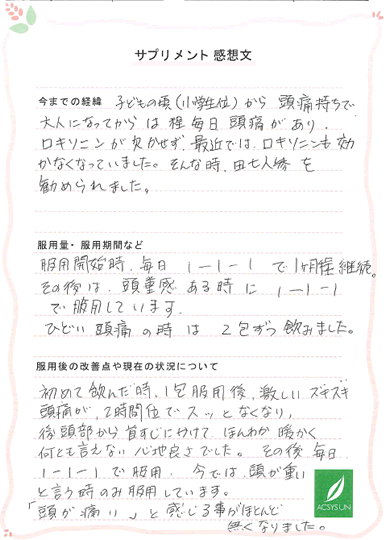 サプリメント 感想文
今までの経緯 子どもの頃(小学生位)から 頭痛持ちで
大人になってからは 程 毎日 頭痛があり、
ロキソニンが欠かせず、最近では、ロキソニンも効
かなくなっていました。そんな時、田七人参を
勧められました。
服用量・服用期間など
服用開始時、毎日 1-1-1 で1ヶ月程継続。
その後は、頭重感 ある時に 1-1-1
で服用しています。
ひどい頭痛の時は 2包ずつ飲みました。
服用後の改善点や現在の状況について
初めて飲んだ時、1包服用後、激しいズキズキ
頭痛が、2時間位でスッとなくなり、
後頭部から首すじにかけて ほんわか暖かく
何とも言えない心地良さでした。その後、毎日
1-1-1で服用、今では、頭が重い
と言う時のみ服用しています。
「頭が痛い」と感じる事がほとんど
無くなりました。
ACSYSUN